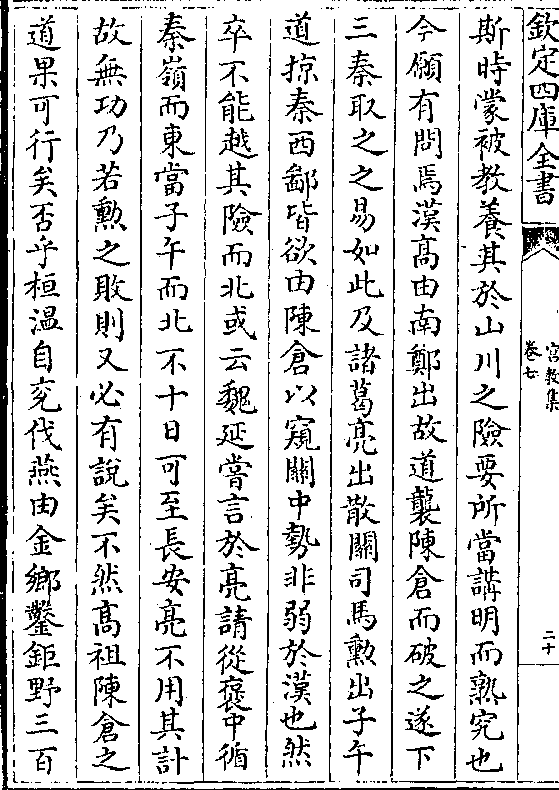 欽定四庫全書
宮教集
卷七
二十
斯時蒙被教養其於山川之險要所當講明而熟究也
今願有問焉漢髙由南鄭出故道襲陳倉而破之遂下
三秦取之之易如此及諸葛亮出散關司馬勲出子午
道掠秦西鄙皆欲由陳倉以窺關中勢非弱於漢也然
卒不能越其險而北或云魏延嘗言於亮請從褒中循
秦嶺而東當子午而北不十日可至長安亮不用其計
故無功乃若勲之敗則又必有說矣不然髙祖陳倉之
道果可行矣否乎桓温自兖伐燕由金鄉鑿鉅野三百